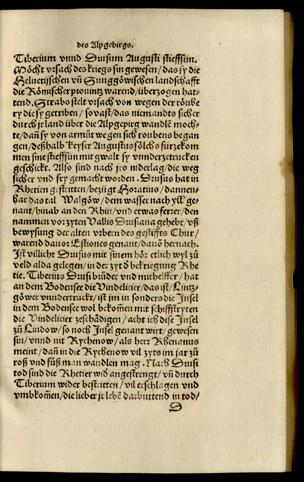 des Alpgebirgs.
Tiberium vnnd Drusum Augusti stieffsün.
Möcht vrsach des kriegs sin gewesen/das sy die
Heluetischen vñ Sunggöwischen landschafft
die Römischer prouintz warend/überzogen hat-
tend. Strabo stelt vrsach von wegen der röube
ry die sy getriben/so vast/das niemandts sicher
durch jr land über die Alpgepirg wandlē möch-
te/dañ sy von armůt wegen sich roubens began
gen/deßhalb keyser Augustus sölchs fürzekom
men sine stieffsün mit gwalt sy vnnderzetrucken
geschickt. Also sind nach jro niderlag/die weg
sicher vnd fry gemacht worden. Drusus hat in
Rhetien gestritten/bezügt Horatius/dannen-
har das tal Walgöw/dem wasser nach yll ge-
nant/hinab an den Rhin/vnd etwas ferrer/den
nammen vor zyten Vallis Drusiana gehebt/vß
bewysung der alten vrbern des gestiffts Chur/
warend dauor Estiones genant/dauō hernach.
Ist villicht Drusus mit sinem hör etlich wyl zů
veld alda gelegen/in der zyt d bekriegung Rhe
tie. Tiberius Drusi brůder vnd mithelffer/hat
an dem Bodensee die Vindelicier/das ist/Lintz-
göwer vnndertruckt/ist jm in sonders die Insel
in dem Bodensee wol bekom̄en mit schiffstryten
die Vindelicier zeschädigen/acht ich dise Insel
zů Lindow/so noch Insel genant wirt/gewesen
sin/vnnd nit Rychenow/als herr Rhenanus
meint/dañ in die Rychenow vil zyts im jar zů
roß vnd fůß man wandlen mag. Nach Drusi
tod sind die Rhetier wid angestrengt/vñ durch
Tiberium wider bestritten/vil erschlagen vnd
vmbkom̄en/die lieber jr lebē darbuttend in tod/
D